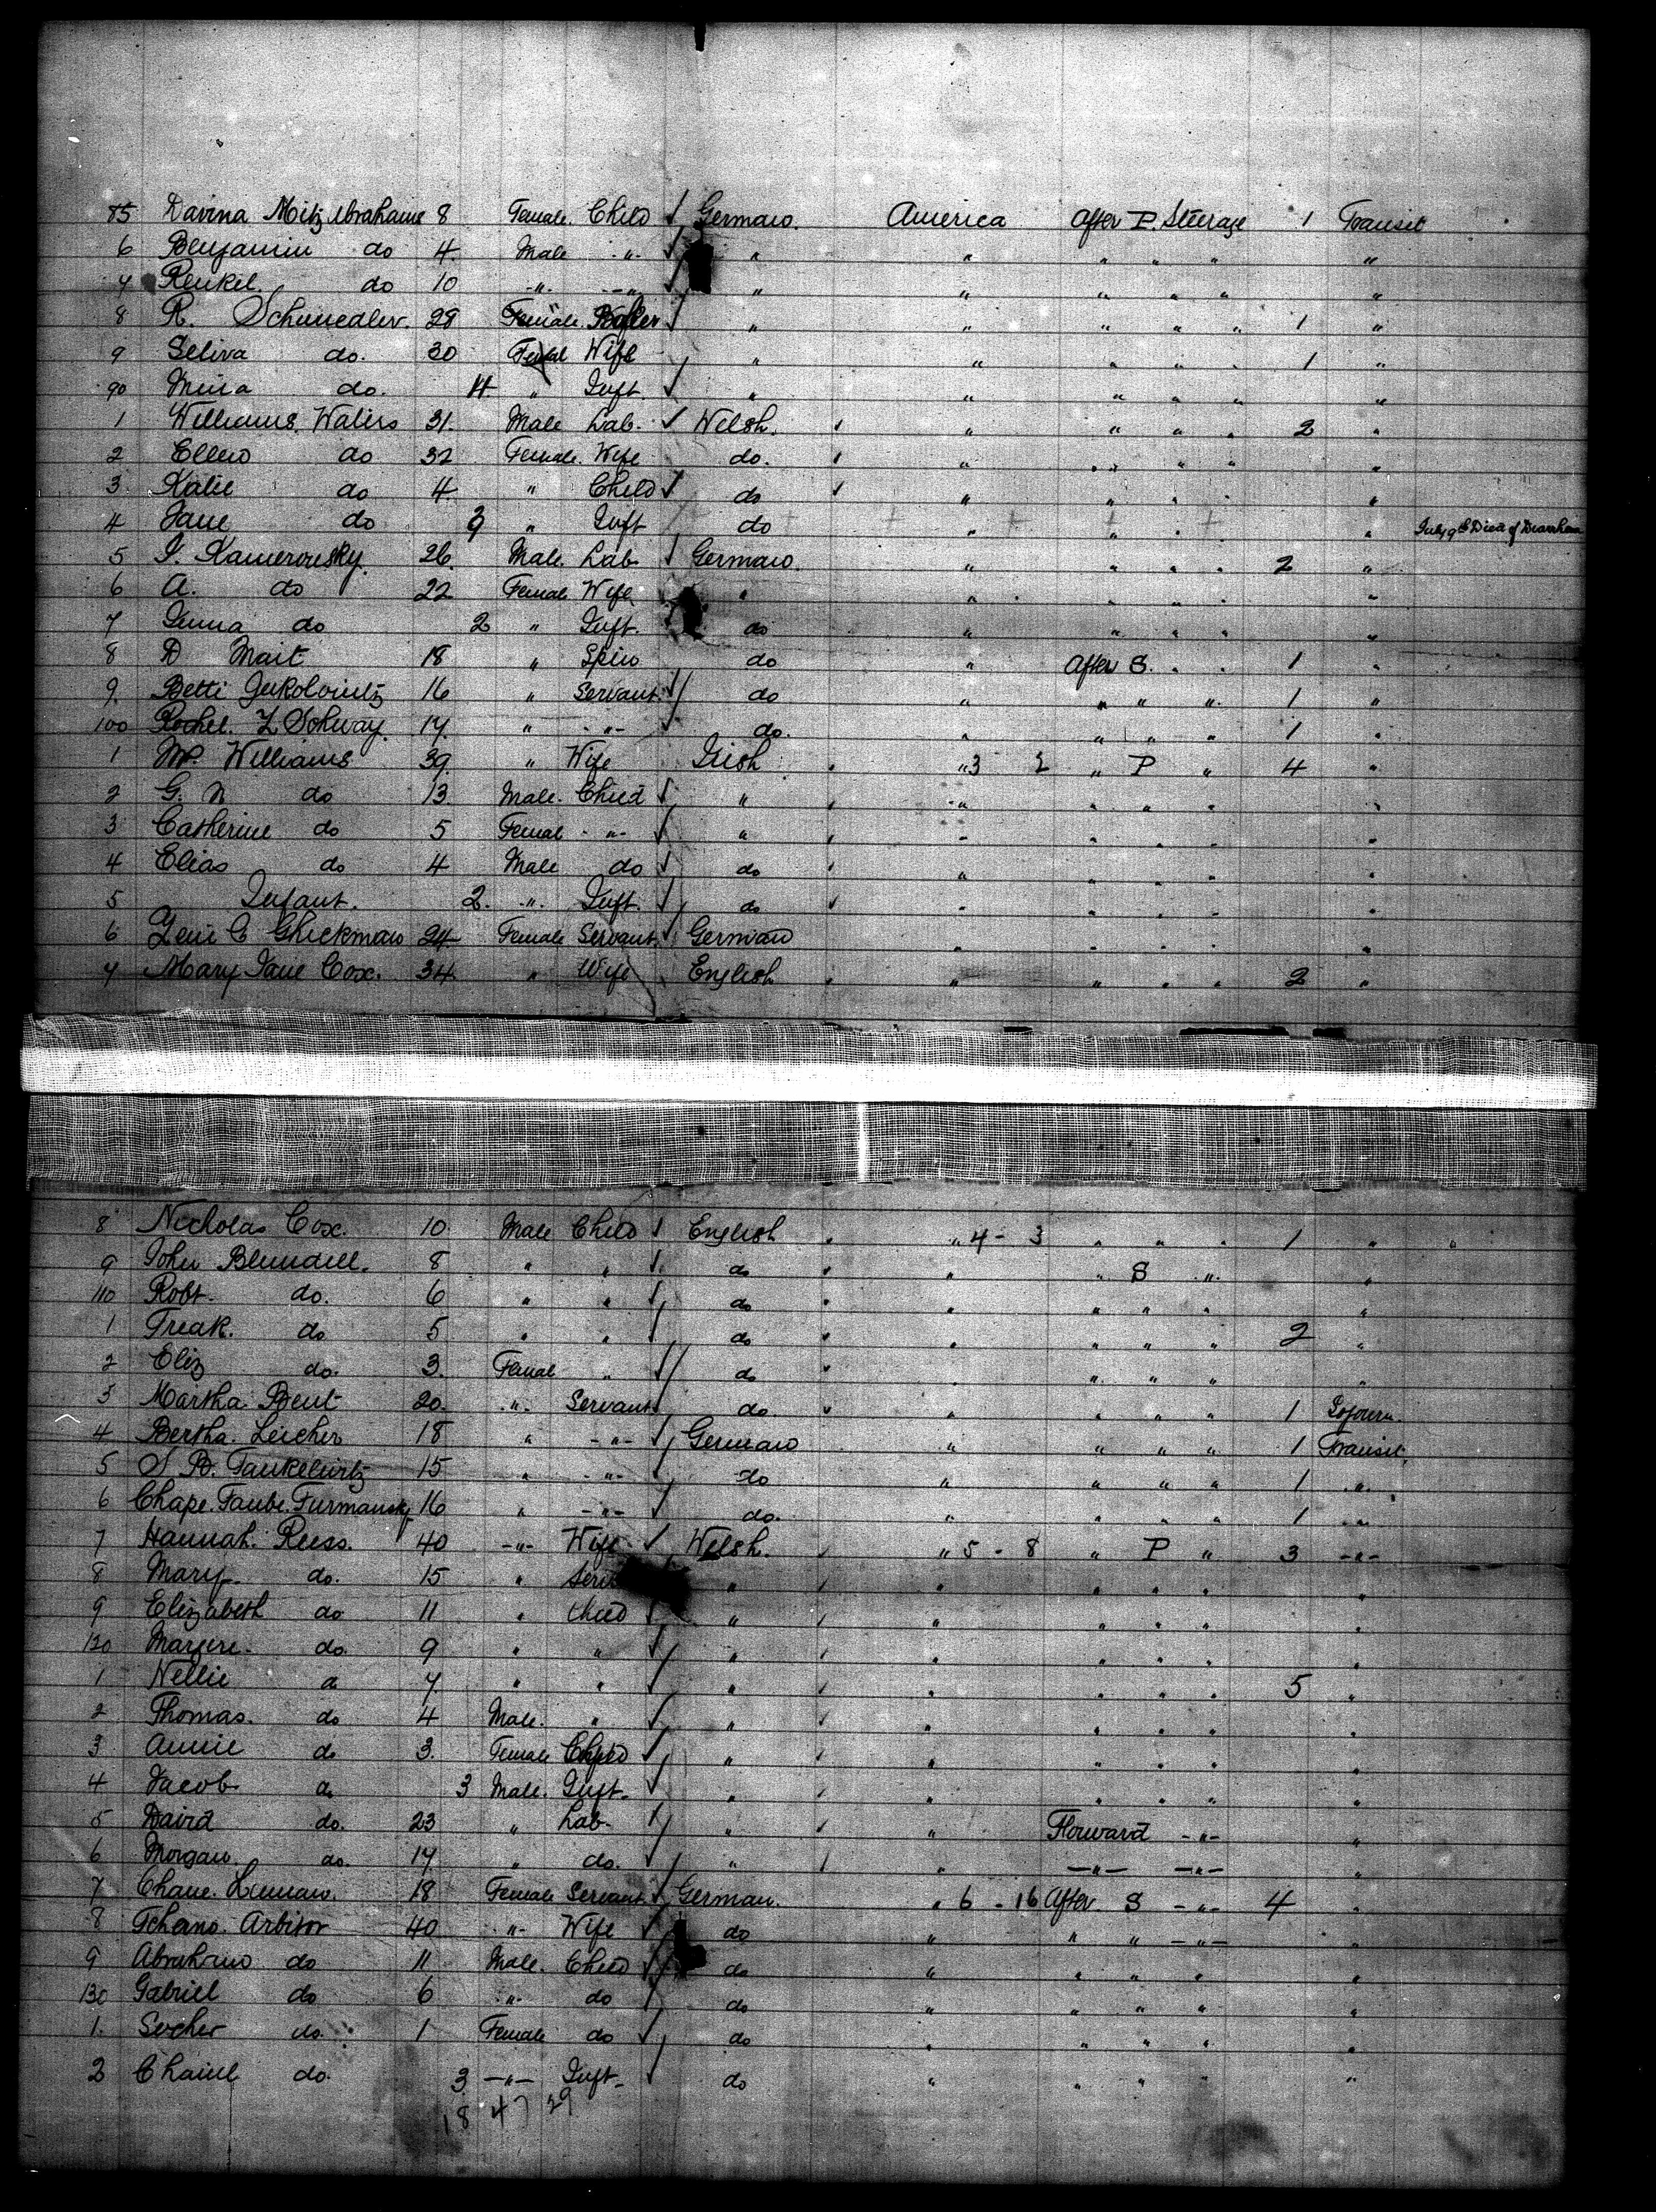 85 Davina Mitz Abrahams 8 Female Child ✓ German. America After P. Steerage 1 Transit
6 Benjamin do 4. Male " ✓ " " " " " "
7 Renkel. do 10 " " ✓ " " " " " "
8 R. 29 Female ✓ " " " " " 1 "
9 Seliva do. 30 Femal Wife " " " " " 1 "
90 Meira do. 4 " Inft. ✓ " " " " " "
1 Williams. 31. Male Lab. ✓ Welsh. " " " " 2 "
2 Ellen do 32 Female. Wife do. " " " " "
3 Katie do 4 " Child ✓ do " " " " "
4 Jane do 9 " Inft do " " " " " July 9th Died of
5 I. Kamerousky. 26. Male. Lab. ✓ German. " " " " 2 "
6 A. do 22 Female Wife " " " " " "
7 do 2 " Inft. do " " " " "
8 D Mait 18 " do " After S. " " 1 "
9. Betti 16 " Servant. ✓ do " " " " 1 "
100 Rochel. Z. Schway. 17. " " ✓ do. " " " " 1 "
1 Williams 39. " Wife Irish " 3 2 " P " 4 "
2 G. N do 13. Male. Child ✓ " " " " " "
3 Catherine do 5 Femal " ✓ " " " " " "
4 Elias do 4 Male do ✓ do " " " " "
5 Infant. 2. " Inft. ✓ do " " " " "
6 Ghickman 24 Female Servant. ✓ German " " " " "
7 Mary Jane Cox. 34. " Wife English " " " " 2 "
8 Nicholas Cox. 10. Male Child ✓ English " 4 - 3 " " " 1 "
9 John Blundell. 8 " " ✓ do " " S " "
110 Robt. do. 6 " " ✓ do " " " " "
1 Freak. do 5 " " ✓ do " " " " 2 "
2 Eliz do. 3. Femal " ✓ do " " " " "
3 Martha Bent 20. " Servant ✓ do. " " " " 1 Sojourn.
4 Bertha. Leicher 18 " " ✓ German " " " " 1 Transit.
5 S. B. 15 " " do " " " " 1 "
6 Chape. Taube. Furmansky 16 " " ✓ do. " " " " 1 "
7 Hannah. Rees. 40 " Wife ✓ Welsh. " 5 - 8 " P " 3 "
8 Mary. do. 15 " " " " " " "
9 Elizabeth do 11 " Child ✓ " " " " " "
120 do. 9 " " ✓ " " " " " "
1 Nellie do 7. " " ✓ " " " " " 5 "
2 Thomas. do 4 Male. " ✓ " " " " " "
3 Annie do 3. Female Child ✓ " " " " " "
4 Jacob do 3 Male. Inft. ✓ " " " " " "
5 David do. 23 " Lab. ✓ " " Forward " "
6 Morgan. do. 17 " do. ✓ " " " " "
7 Chane. 18 Female Servant. ✓ German. " 6 - 16 After S " 4 "
8 Arbisor 40 " Wife ✓ do " " " " "
9 Abraham do 11 Male. Child ✓ do " " " " "
130 Gabriel do 6 " do ✓ do " " " " "
1. Socher do. 1 Female do ✓ do " " " " "
2 do. 3 " Inft. ✓ do " " " " "
18 47 29